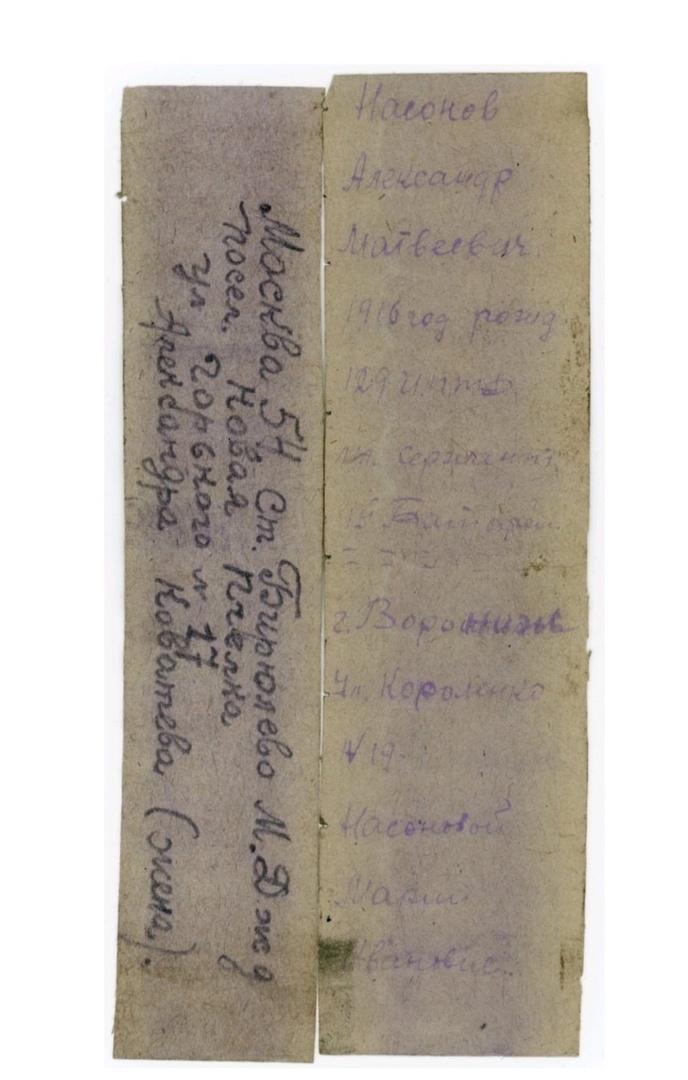 Москва 54 Ст. Бирюлево М. Д жд
посел. Новая Пчелка
ул Горького № 17
Александра Ковалева (жена).
Насонов
Александр
Матвеевич
1916 год рожд
129
мл. Сержант
15 Батарея
г. Ворошилов
Ул. Короленко
№ 19
Насоновой
Марии
Ивановне